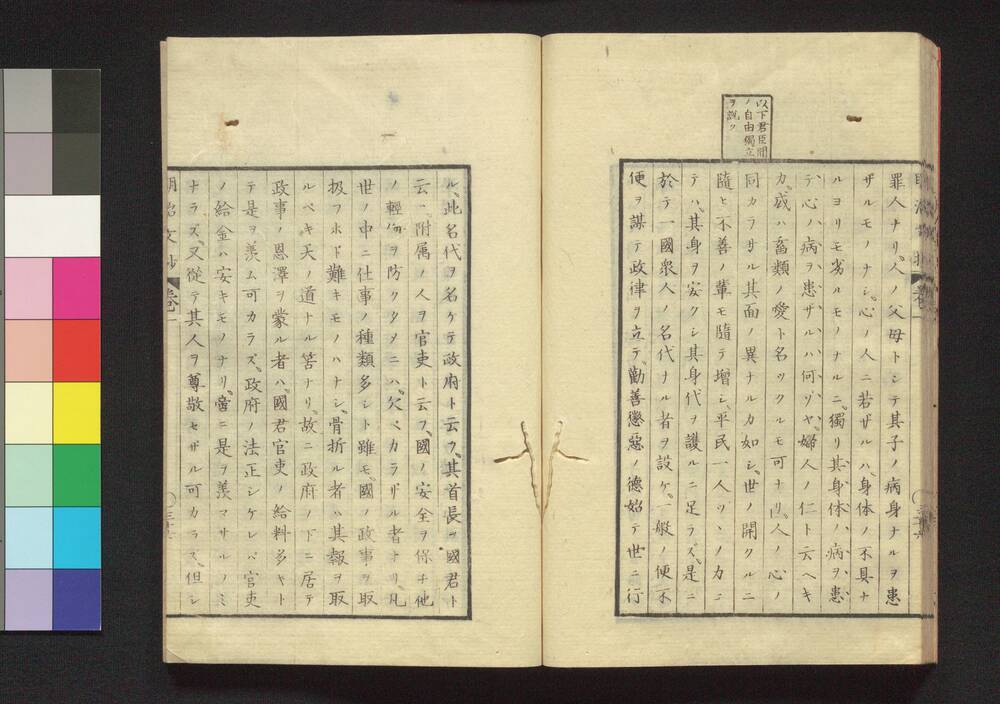 以下君臣間
ノ自由獨立
ヲ説ク
罪人ナリ。人ノ父母トシテ其子ノ病身ナルヲ患
ザルモノナシ。心ノ人ニ若ザルハ、身体ノ不具ナ
ルヨリモ劣ルモノナルニ、獨リ其身体ノ病ヲ患
テ、心ノ病ヲ患ザルハ何ゾヤ。婦人ノ仁ト云ヘキ
カ。或ハ畜類ノ愛ト名ツクルモ可ナリ。人ノ心ノ
同カラサル其面ノ異ナルカ如シ。世ノ開クルニ
隨ヒ不善ノ輩モ隨テ增シ、平民一人ツヽノ力ニ
テハ、其身ヲ安クシ其身代ヲ護ルニ足ラズ。是ニ
於テ一國衆人ノ名代ナル者ヲ設ケ、一般ノ便不
便ヲ謀テ政律ヲ立テ、勸善懲惡ノ德始テ世ニ行
ル。此名代ヲ名ケテ政府ト云フ。其首長ヲ國君ト
云ニ、附属ノ人ヲ官吏ト云フ。國ノ安全ヲ保チ他
ノ輕侮ヲ防クタメニハ、欠ベカラザル者ナリ。凡
世ノ中ニ仕事ノ種類多シト雖モ、國ノ政事ヲ取
扱フホド難キモノハナシ。骨折ル者ハ其報ヲ取
ルベキ天ノ道ナル筈ナリ。故ニ政府ノ下ニ居テ
政事ノ恩澤ヲ蒙ル者ハ、國君官吏ノ給料多キト
テ是ヲ羨ム可カラズ。政府ノ法正シケレバ官吏
ノ給金ハ安キモノナリ。啻ニ是ヲ羨マサルノミ
ナラズ、又從テ其人ヲ尊敬セザル可カラズ。但シ
明治文抄 卷一